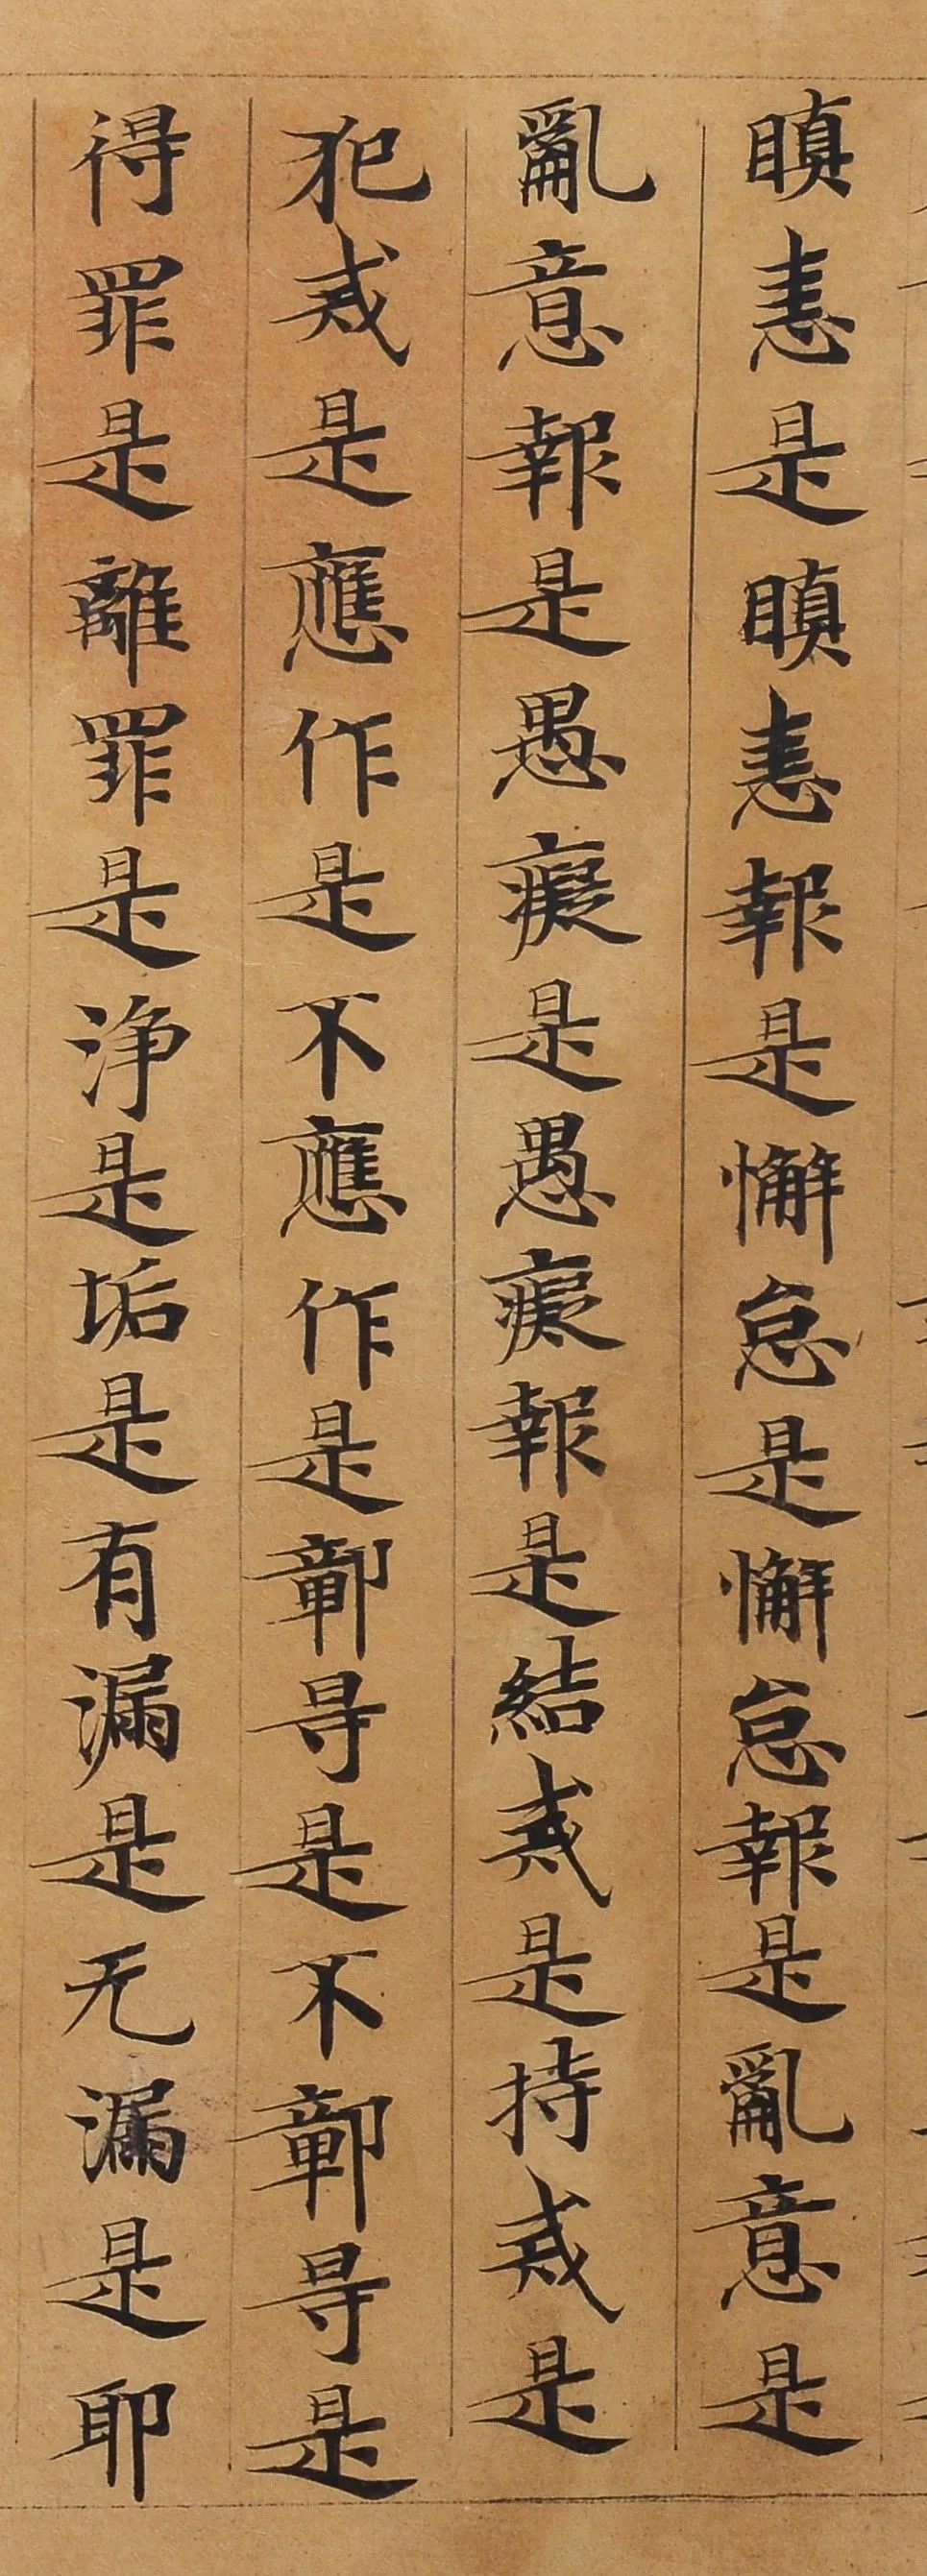 瞋恚是瞋恚報是懈怠是懈怠報是亂意是
亂意報是愚癡是愚癡報是結戒是持戒是
犯戒是應作是不應作是鄣㝵是不鄣㝵是
得罪是離罪是浄是垢是有漏是无漏是耶